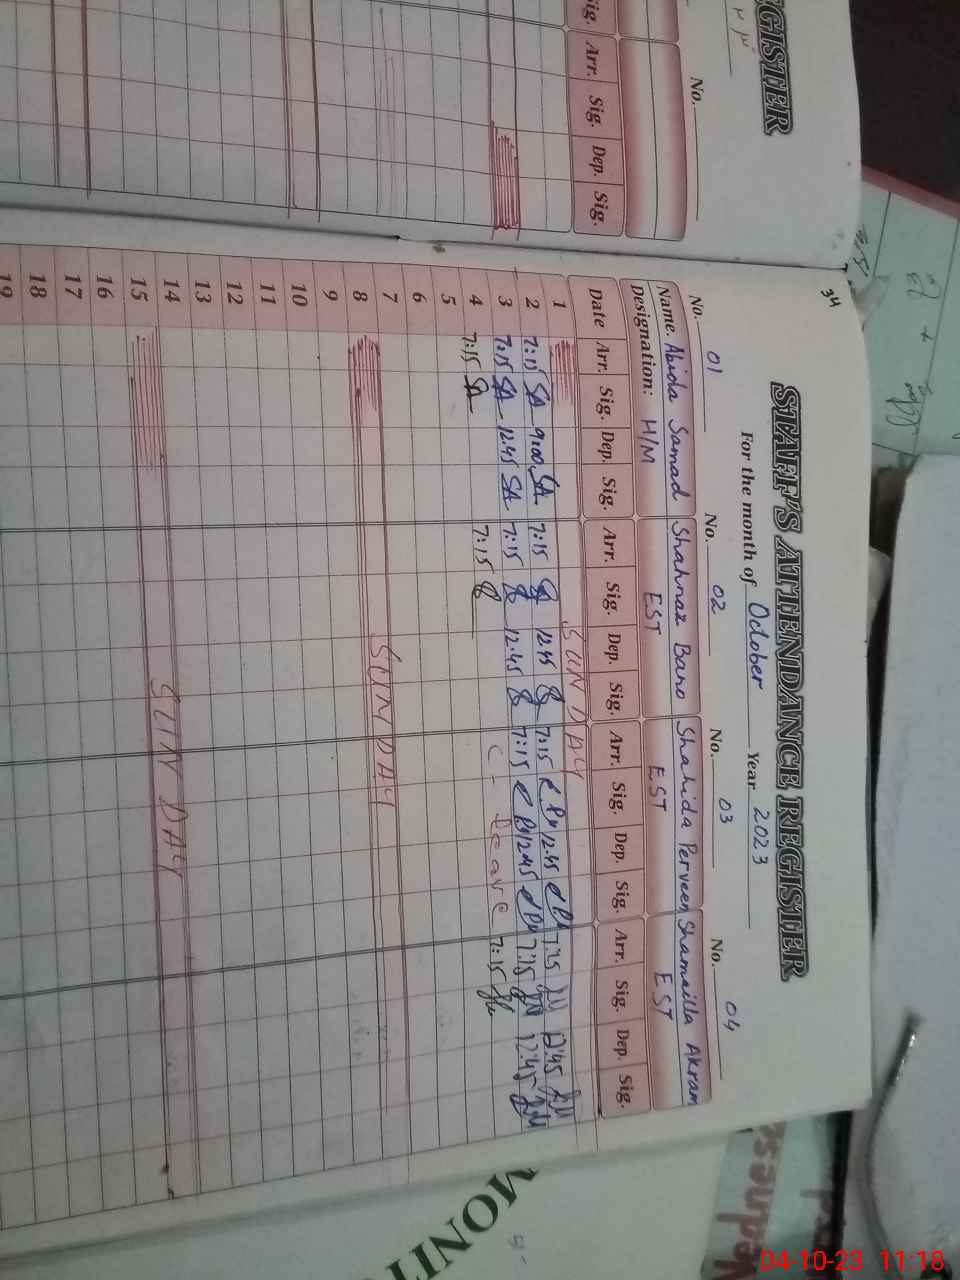 34
STAFF'S ATTENDANCE REGISTER
For the month of October Year 2023
No. 01 No. 02 No. 03 No. 04
Name. Abida Samad Shahnaz Bano Shahida Perveen Shamailla Akram
Designation: H/M EST EST EST
Date Arr. Sig. Dep. Sig. Arr. Sig. Dep. Sig. Arr. Sig. Dep. Sig. Arr. Sig. Dep. Sig.
1 SUNDAY
2 7:15 SA 9:00 SA 7:15 12:45 7:15 12:45 7:15 12:45
3 7:15 SA 12:45 SA 7:15 12:45 7:15 12:45 7:15 12:45
4 7:15 SA 7:15 C- Leave 7:15
5
6
7
8 SUNDAY
9
10
11
12
13
14
15 SUNDAY
16
17
18
19
REGISTER
No.
Sig. Arr. Sig. Dep. Sig.
MONIT
04-10-23 11:18